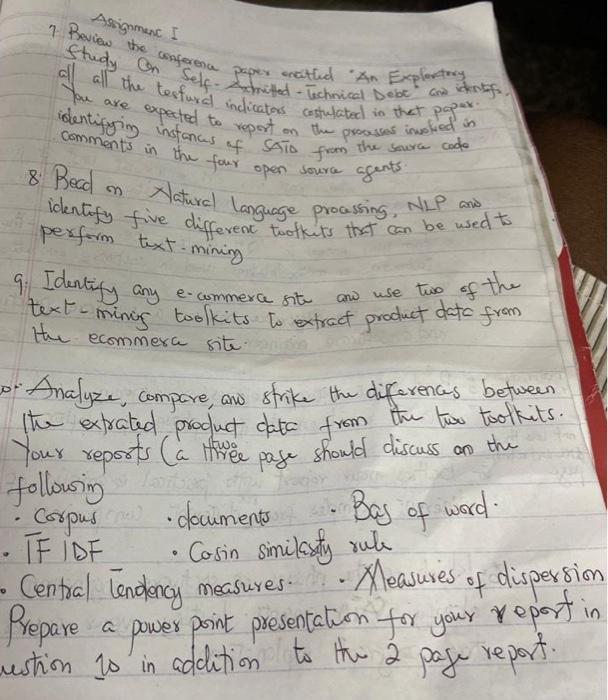 Assignment I
7. Review the conference paper entitled "An Exploratory
Study On Self-Admitted-Technical Debt" and identify
all all the textural indicators costulated in that paper.
You are expected to report on the processes involved in
identifying instances of SATD from the source code
comments in the four open source agents.
8. Read on Natural language processing, NLP and
identify five different toolkits that can be used to
perform text-mining
9. Identify any e-commerce site and use two of the
text-mining toolkits to extract product data from
the ecommerce site.
Analyze, compare, and strike the differences between
the extrated product data from the two toolkits.
Your reports (a three two page should discuss on the
following
• Corpus • documents • Bag of word.
• TF IDF • Cosin similarity rule
• Central Tendency measures. • Measures of dispersion
Prepare a power point presentation for your report in
uestion 10 in addition to the 2 page report.